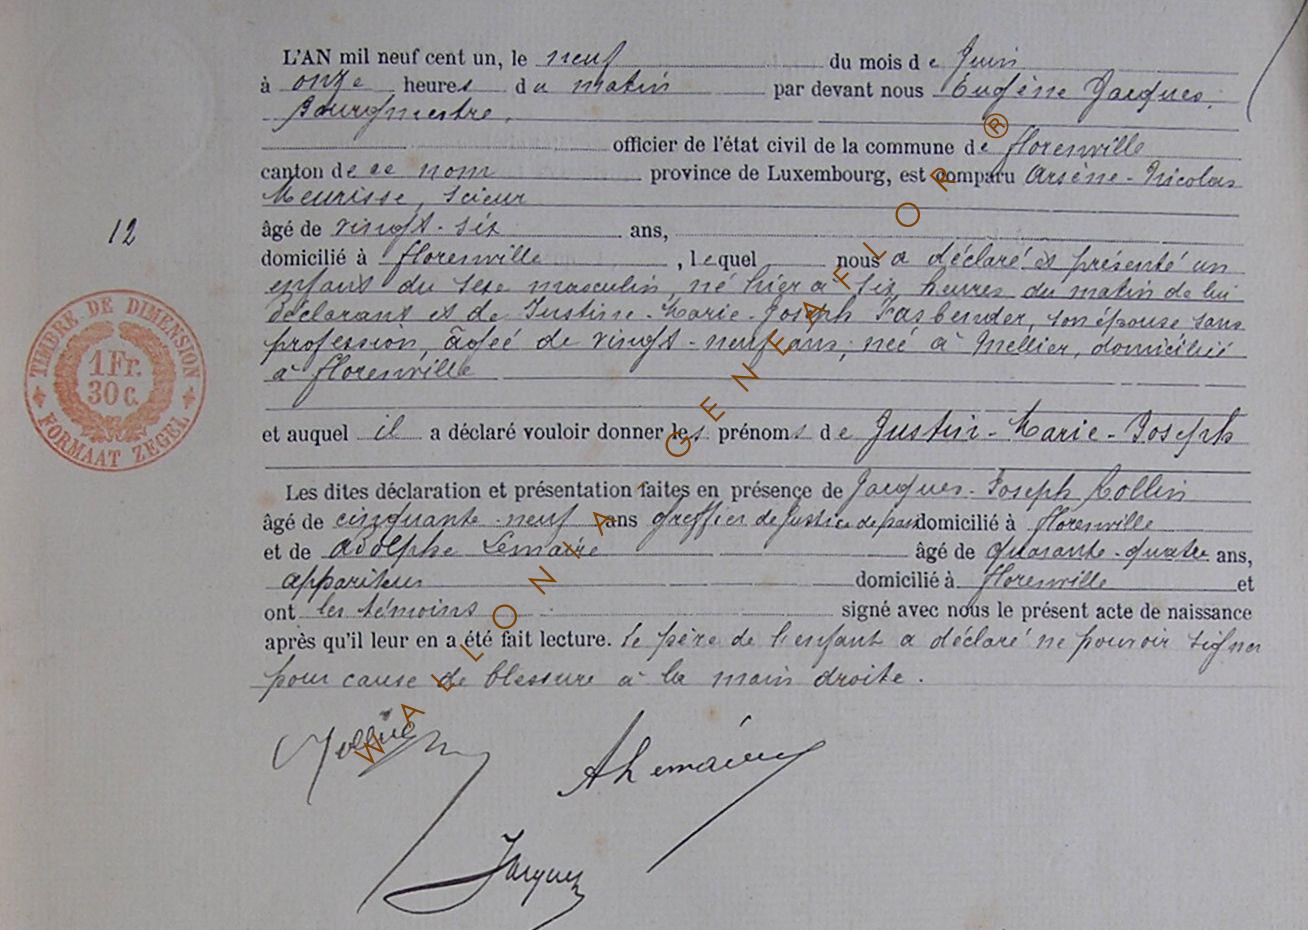 L'AN mil neuf cent un, le neuf du mois de Juin
à onze heures du matin par devant nous Eugène Jacques,
Bourgmestre,
officier de l'état civil de la commune de Florenville
canton de ce nom province de Luxembourg, est comparu Arsène-Nicolas
Meurisse, scieur
12
âgé de vingt-six ans,
domicilié à Florenville, lequel nous a déclaré et présenté un
enfant du sexe masculin, né hier à six heures du matin de lui
déclarant et de Justine-Marie-Joseph Fasbender, son épouse sans
profession, âgée de vingt-neuf ans, née à Mellier, domiciliée
à Florenville
TIMBRE DE DIMENSION
1 Fr.
30 c.
FORMAAT ZEGEL
et auquel il a déclaré vouloir donner les prénoms de Justin-Marie-Joseph
Les dites déclaration et présentation faites en présence de Jacques-Joseph Collin
âgé de cinquante-neuf ans greffier de Justice de paix domicilié à Florenville
et de Adolphe Lemaire âgé de quarante-quatre ans,
appariteur domicilié à Florenville et
ont les témoins signé avec nous le présent acte de naissance
après qu'il leur en a été fait lecture. Le père de l'enfant a déclaré ne pouvoir signer
pour cause de blessure à la main droite.
A Lemaire
Jacques
WALLONIA-GENEAFLOR®